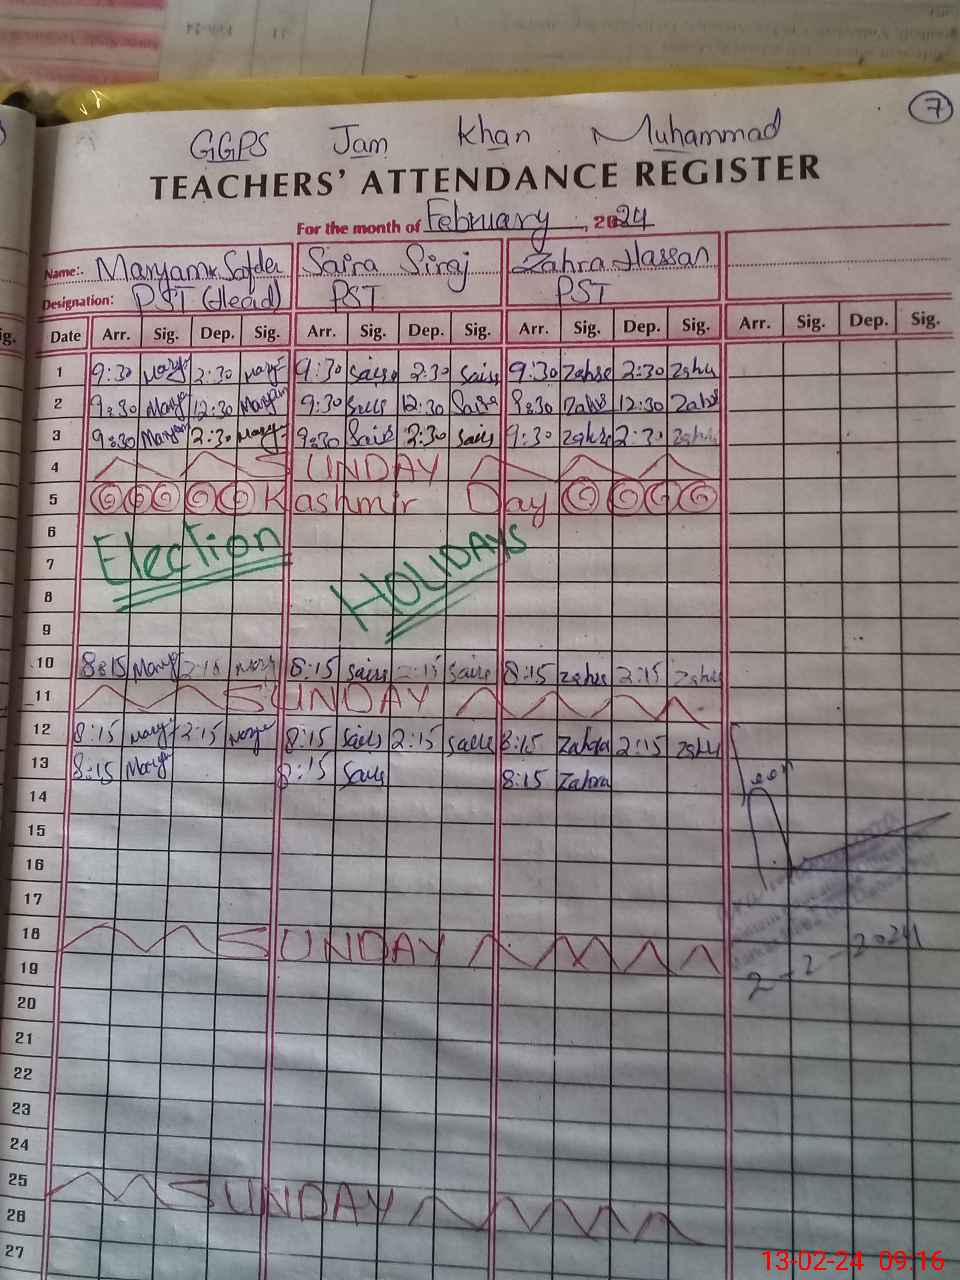 7
GGPS Jam Khan Muhammad
TEACHERS' ATTENDANCE REGISTER
For the month of February, 2024
Name:. Maryam Safder Saira Siraj Zahra Hassan
Designation: PST (Head) PST PST
Date Arr. Sig. Dep. Sig. Arr. Sig. Dep. Sig. Arr. Sig. Dep. Sig. Arr. Sig. Dep. Sig.
1 9:30 2:30 9:30 2:30 9:30 2:30
2 9:30 12:30 9:30 12:30 9:30 12:30
3 9:30 2:30 9:30 2:30 9:30 2:30
4 SUNDAY
5 Kashmir Day
6
7 Election HOLIDAYS
8
9
10 8:15 2:15 8:15 2:15 8:15 2:15
11 SUNDAY
12 8:15 2:15 8:15 2:15 8:15 Zahra 2:15
13 8:15 8:15 8:15 Zahra
14
15
16
17
18 SUNDAY
19 2-2-2024
20
21
22
23
24
25 SUNDAY
26
27
13-02-24 09:16